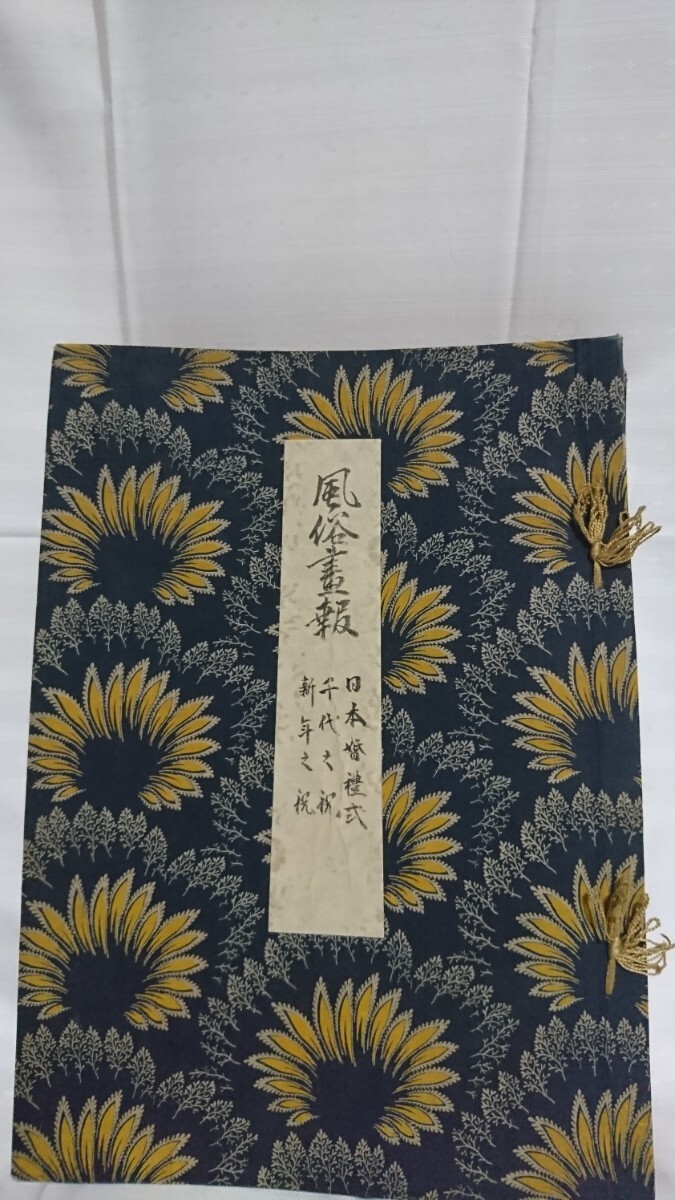 風俗畫報
日本婚禮式
千代之祝
新年之祝